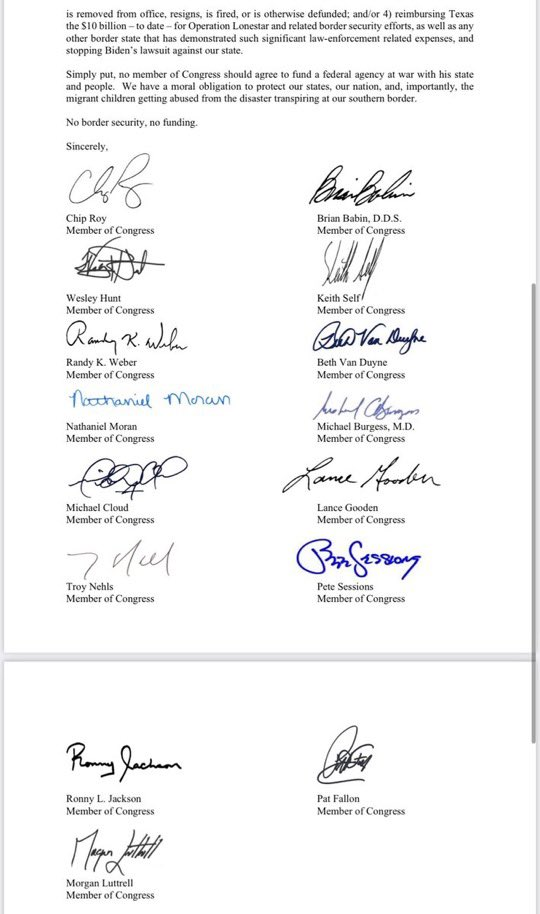 is removed from office, resigns, is fired, or is otherwise defunded; and/or 4) reimbursing Texas
the $10 billion – to date – for Operation Lonestar and related border security efforts, as well as any
other border state that has demonstrated such significant law-enforcement related expenses, and
stopping Biden's lawsuit against our state.
Simply put, no member of Congress should agree to fund a federal agency at war with his state
and people. We have a moral obligation to protect our states, our nation, and, importantly, the
migrant children getting abused from the disaster transpiring at our southern border.
No border security, no funding.
Sincerely,
Chip Roy
Member of Congress
Brian Babin
Brian Babin, D.D.S.
Member of Congress
Wesley Hunt
Member of Congress
Keith Self
Keith Self
Member of Congress
Randy K. Weber
Randy K. Weber
Member of Congress
Beth Van Duyne
Beth Van Duyne
Member of Congress
Nathaniel Moran
Nathaniel Moran
Member of Congress
Michael Burgess, M.D.
Member of Congress
Michael Cloud
Member of Congress
Lance Gooden
Lance Gooden
Member of Congress
Troy Nehls
Member of Congress
Pete Sessions
Pete Sessions
Member of Congress
Ronny Jackson
Ronny L. Jackson
Member of Congress
Pat Fallon
Member of Congress
Morgan Luttrell
Morgan Luttrell
Member of Congress